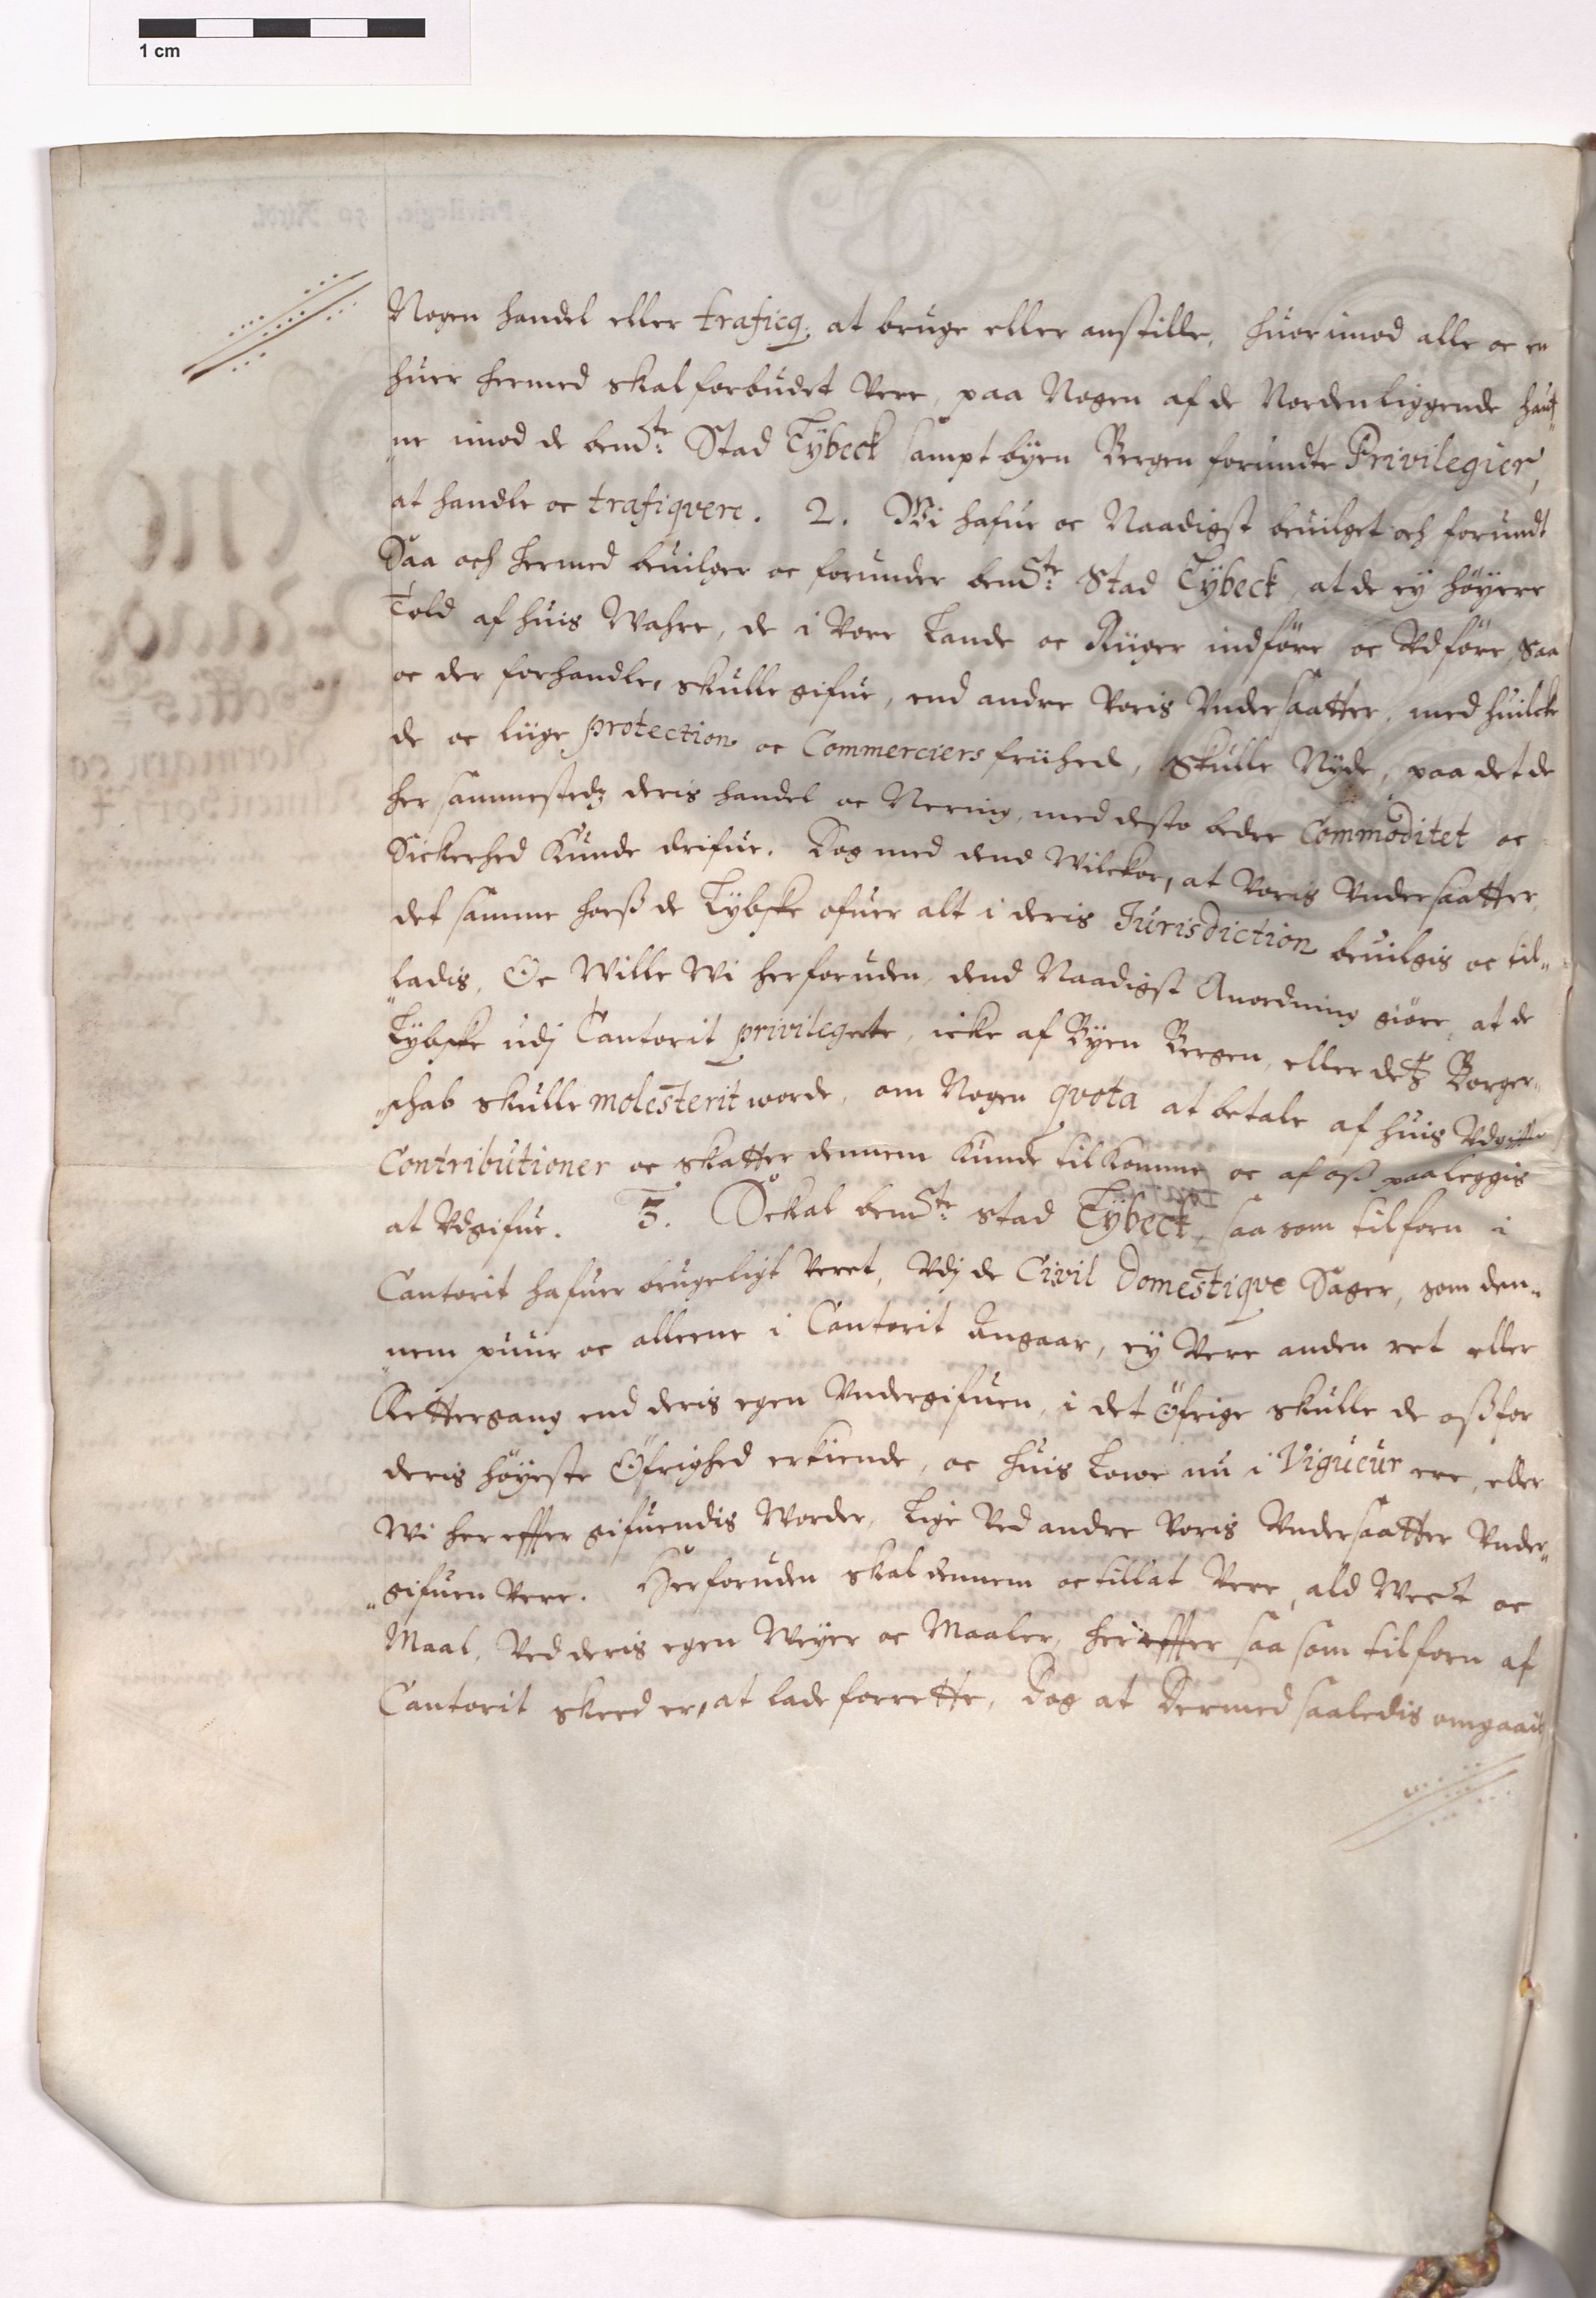 1 cm
Nogen handel eller traficq at bruge eller anstille, huorimod alle oc en
huer hermed skal forbudet vere, paa Nogen af de Nordenliggende hauf
ne imod de bemte: Stad Lÿbeck sampt bÿen Bergen forundte Privilegier,
at handle oc trafiqvere. 2. Wi hafue oc Naadigst beuilget och forundt
Saa och hermed beuilger oc forunder bemte: Stad Lÿbeck, at de eÿ höÿere
Told af huis Wahre, de i Vore Lande oc Riiger indföre oc Vdföre, saa
oc der forhandle, skulle gifue, end andre Voris Vndersaatter, med huilcke
de oc liige protection oc Commerciers friihed, skulle Nÿde, paa det de
her sammestedz deris handel oc Nering, med desto bedre Commoditet oc
Sickerhed kunde drifue. Dog med dend Wilckor, at Voris Vndersaatter,
det samme hoeß de Lÿbske ofuer alt i deris Jurisdiction beuilgis oc til„
„ladis. Oc Wille Wi herforuden, dend Naadigst Anordning giöre, at de
Lÿbske udj Cantorit privilegerte, icke af Bÿen Bergen, eller detz Borger„
„schab skulle molesterit worde, om Nogen qvota at betale af huis Vdgiffter
Contributioner oc skatter dennem kunde tilkomme oc af oß paaleggis
at Vdgifue. 3. Skal bemte: stad Lÿbeck, saa som tilforn i
Cantorit hafuer brugeligt veret, Vdj de Civil Domestiqve Sager, som den„
„nem puur oc alleene i Cantorit Angaar, eÿ Vere anden ret eller
Rettergang end deris egen Vndergifuen, i det Öfrige skulle de oß for
deris höÿeste Öfrighed erkiende, oc huis Lowe nu i Vigueur ere, eller
Wi her effter gifuendis Worder, Lige Ved andre Voris Vndersaatter Vnder„
„gifuen Vere. Herforuden skal dennem oc tillat Vere, ald Wect oc
Maal, Ved deris egen Weÿer oc Maaler, her effter saa som tilforn af
Cantorit skeed er, at lade forrette, Dog at Dermed saaledis omgaais